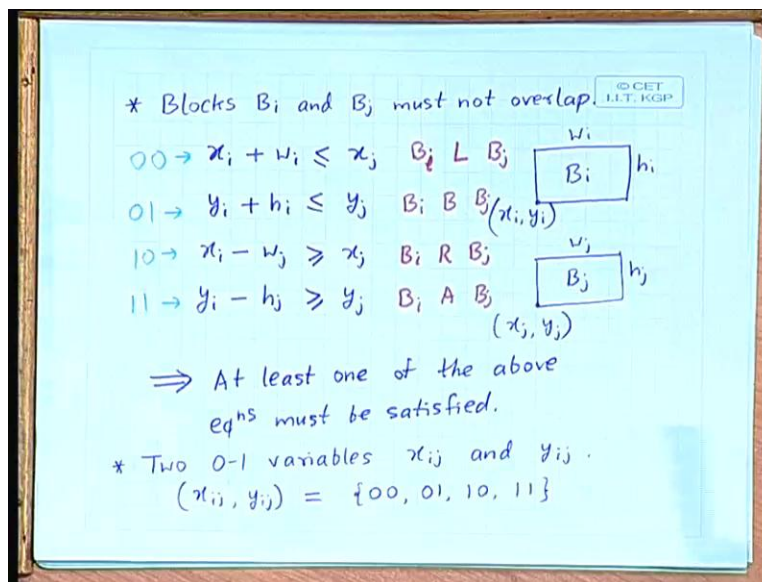 * Blocks Bi and Bj must not overlap.
© CET
I.I.T. KGP
00 → xi + wi ≤ xj Bi L Bj
01 → yi + hi ≤ yj Bi B Bj
10 → xi - wj ≥ xj Bi R Bj
11 → yi - hj ≥ yj Bi A Bj
wi
Bi
hi
(xi, yi)
wj
Bj
hj
(xj, yj)
⇒ At least one of the above
eqns must be satisfied.
* Two 0-1 variables xij and yij.
(xij, yij) = {00, 01, 10, 11}